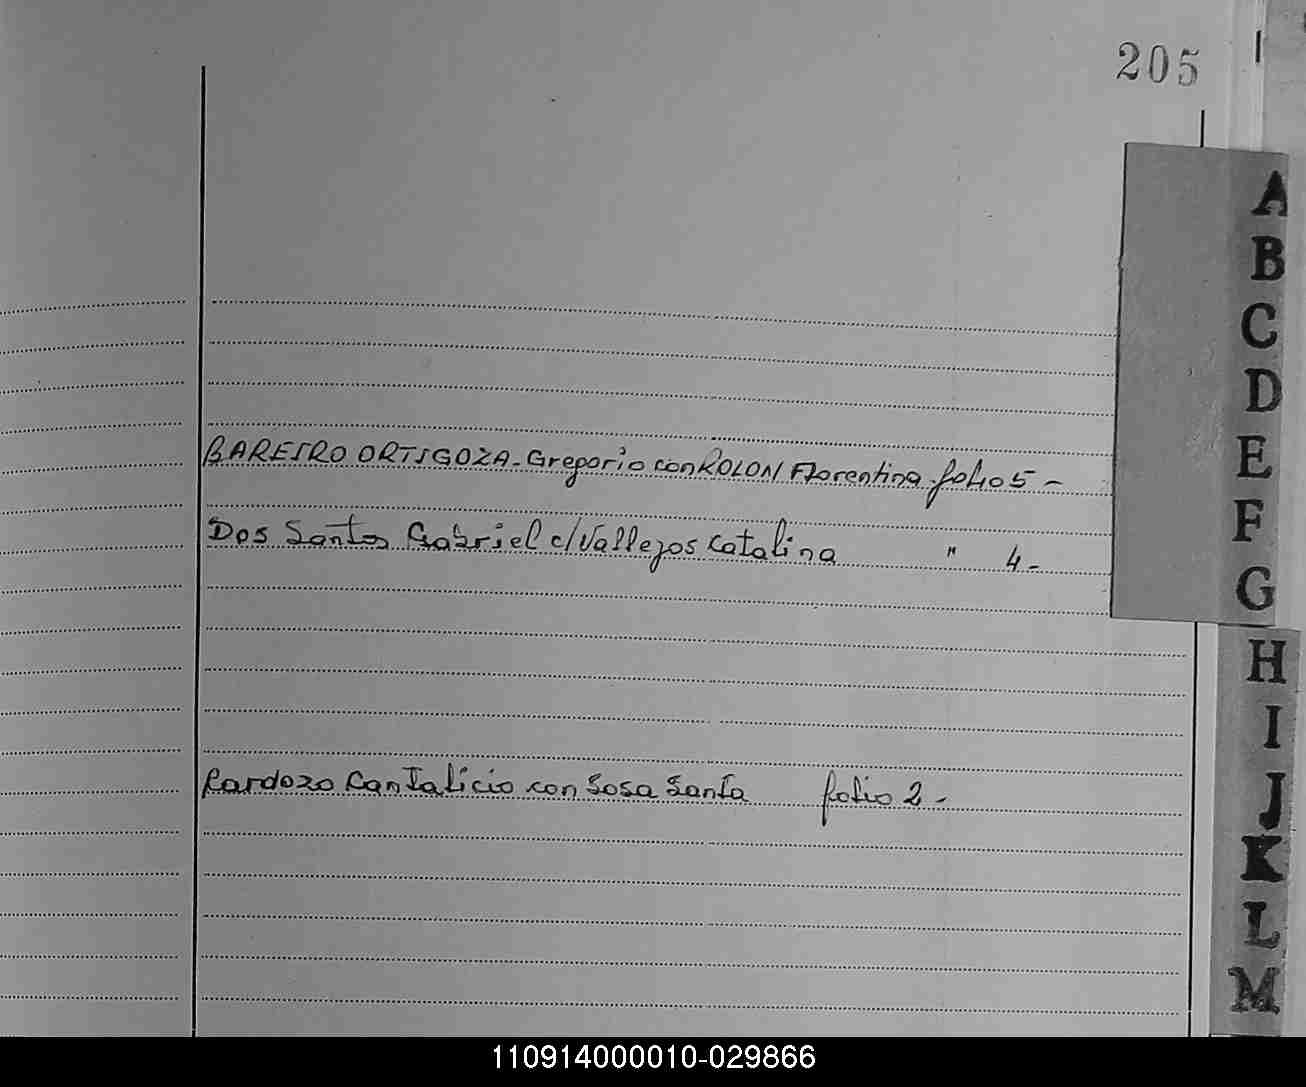 205
A
B
C
D
E
F
G
H
I
J
K
L
M
BAREIRO ORTIGOZA - Gregorio con ROLON Florentina folio 5 -
Dos Santos Gabriel c/ Vallejos Catalina " 4 -
Cardozo Cantalicio con Sosa Santa folio 2 -
110914000010-029866